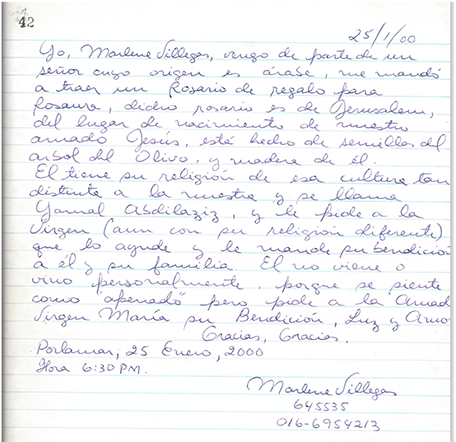 42
25/1/00
Yo, Marlene Villegas, vengo de parte de un
señor cuyo origen es árabe, me mandó
a traer un Rosario de regalo para
Rosaura, dicho rosario es de Jerusalem,
del lugar de nacimiento de nuestro
amado Jesús, está hecho de semillas del
arbol del Olivo, y madera de él.
El tiene su religión de esa cultura tan
distinta a la nuestra y se llama
Yamal Abdilaziz, y le pide a la
Virgen (aun con su religión diferente)
que lo ayude y le mande su bendición
a él y su familia. El no viene o
vino personalmente, porque se siente
como "apenado" pero pide a la Amad
Virgen María su Bendición, Luz y Amo
Gracias, Gracias.
Porlamar, 25 Enero, 2000
Hora 6:30 P.M.
Marlene Villegas
645535
016-6954213